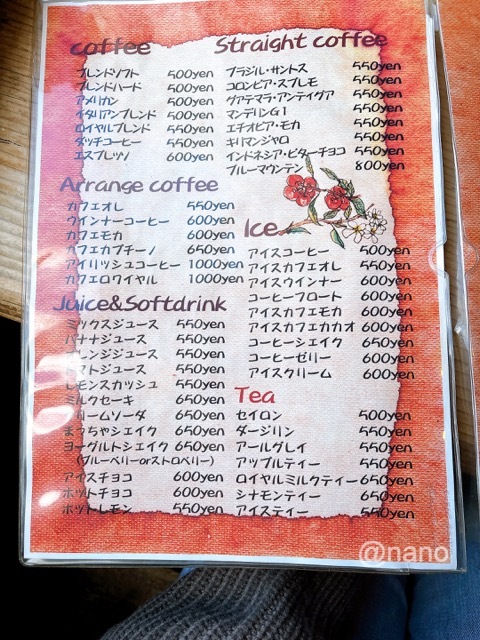 coffee
ブレンドソフト 500yen
ブレンドハード 500yen
アメリカン 500yen
イタリアンブレンド 500yen
ロイヤルブレンド 550yen
ダッチコーヒー 550yen
エスプレッソ 600yen
Straight coffee
ブラジル・サントス 550yen
コロンビア・スプレモ 550yen
グアテマラ・アンティグア 550yen
マンデリンG1 550yen
エチオピア・モカ 550yen
キリマンジャロ 550yen
インドネシア・ビターチョコ 550yen
ブルーマウンテン 800yen
Arrange coffee
カフェオレ 550yen
ウインナーコーヒー 600yen
カフェモカ 600yen
カフェカプチーノ 650yen
アイリッシュコーヒー 1000yen
カフェロワイヤル 1000yen
Ice
アイスコーヒー 500yen
アイスカフェオレ 550yen
アイスウインナー 600yen
コーヒーフロート 600yen
アイスカフェモカ 600yen
アイスカフェカカオ 600yen
コーヒーシェイク 650yen
コーヒーゼリー 600yen
アイスクリーム 600yen
Juice&Softdrink
ミックスジュース 550yen
バナナジュース 550yen
オレンジジュース 550yen
トマトジュース 550yen
レモンスカッシュ 550yen
ミルクセーキ 650yen
クリームソーダ 650yen
まっちゃシェイク 650yen
ヨーグルトシェイク 650yen
(ブルーベリーorストロベリー)
アイスチョコ 600yen
ホットチョコ 600yen
ホットレモン 550yen
Tea
セイロン 500yen
ダージリン 550yen
アールグレイ 550yen
アップルティー 550yen
ロイヤルミルクティー 650yen
シナモンティー 650yen
アイスティー 550yen
@nano